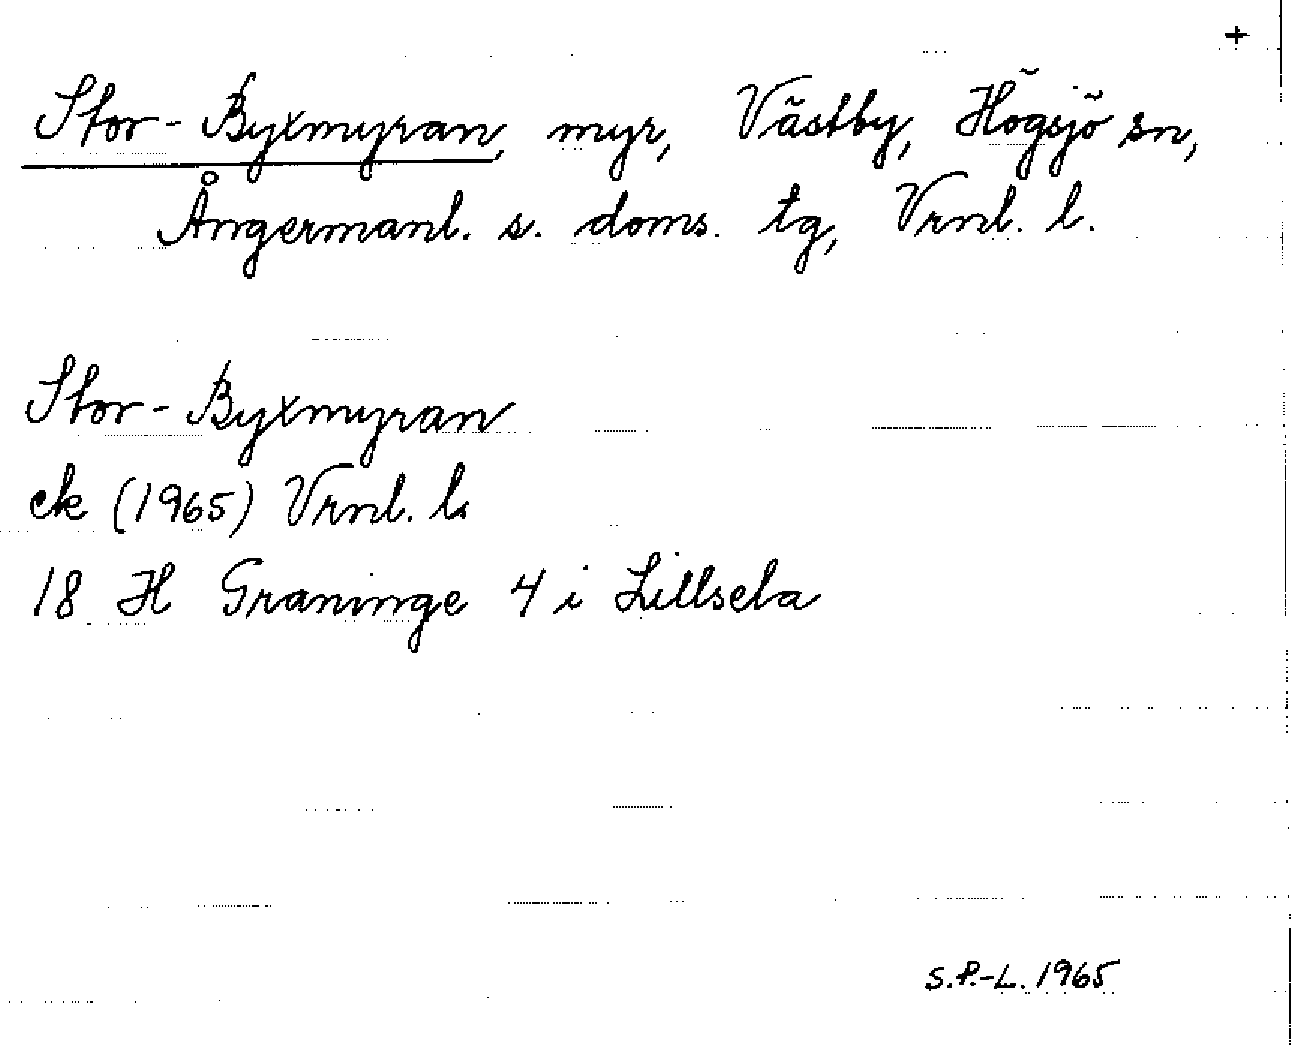 +
Stor-Byxmyran, myr, Västby, Högsjö sn,
Ångermanl. s. doms. tg, Vrnl. l.
Stor-Byxmyran
ek (1965) Vrnl. l.
18 H Graninge 4 i Lillsela
S.P.-L. 1965